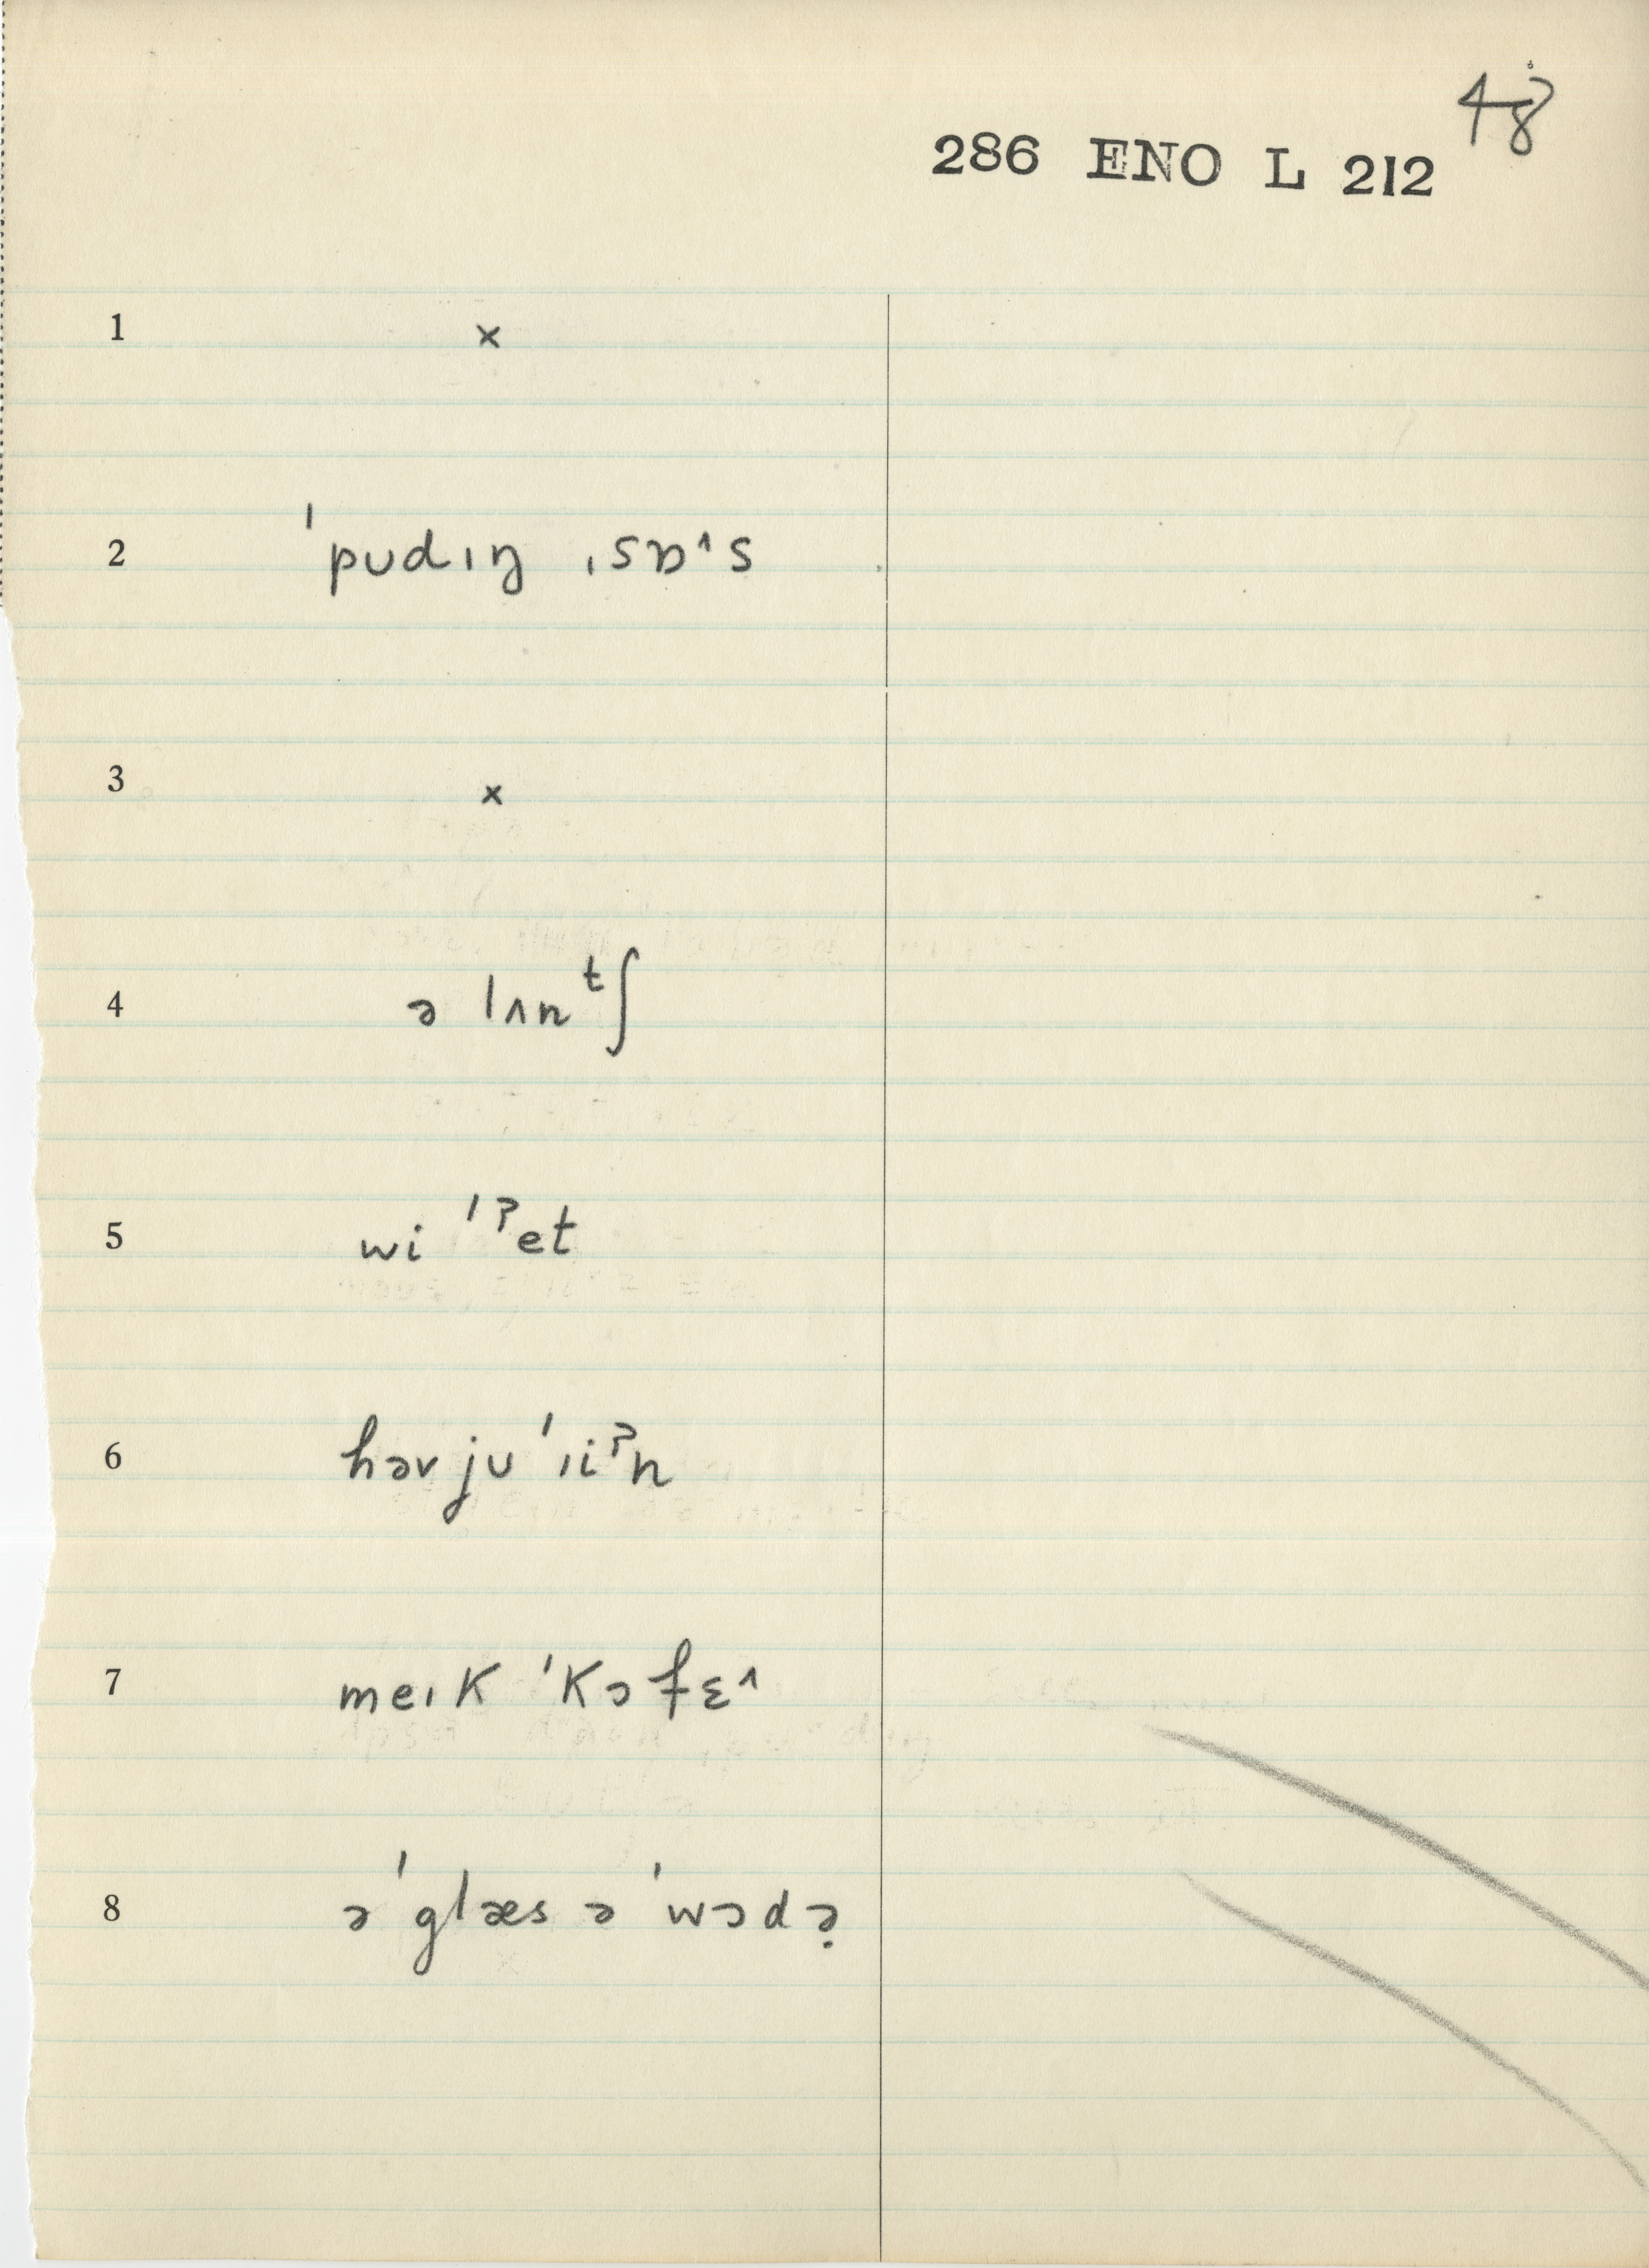 48
286 ENO L 212
1 ×
2 ˈpʊdɪŋ ˌsɒ˄s
3 ×
4 ə lʌnᵗʃ
5 wi ˈˀet
6 həv jʊ ˈıiˀn
7 meɪk ˈkɔfɛ˄
8 əˈglæs əˈwɔdə̣